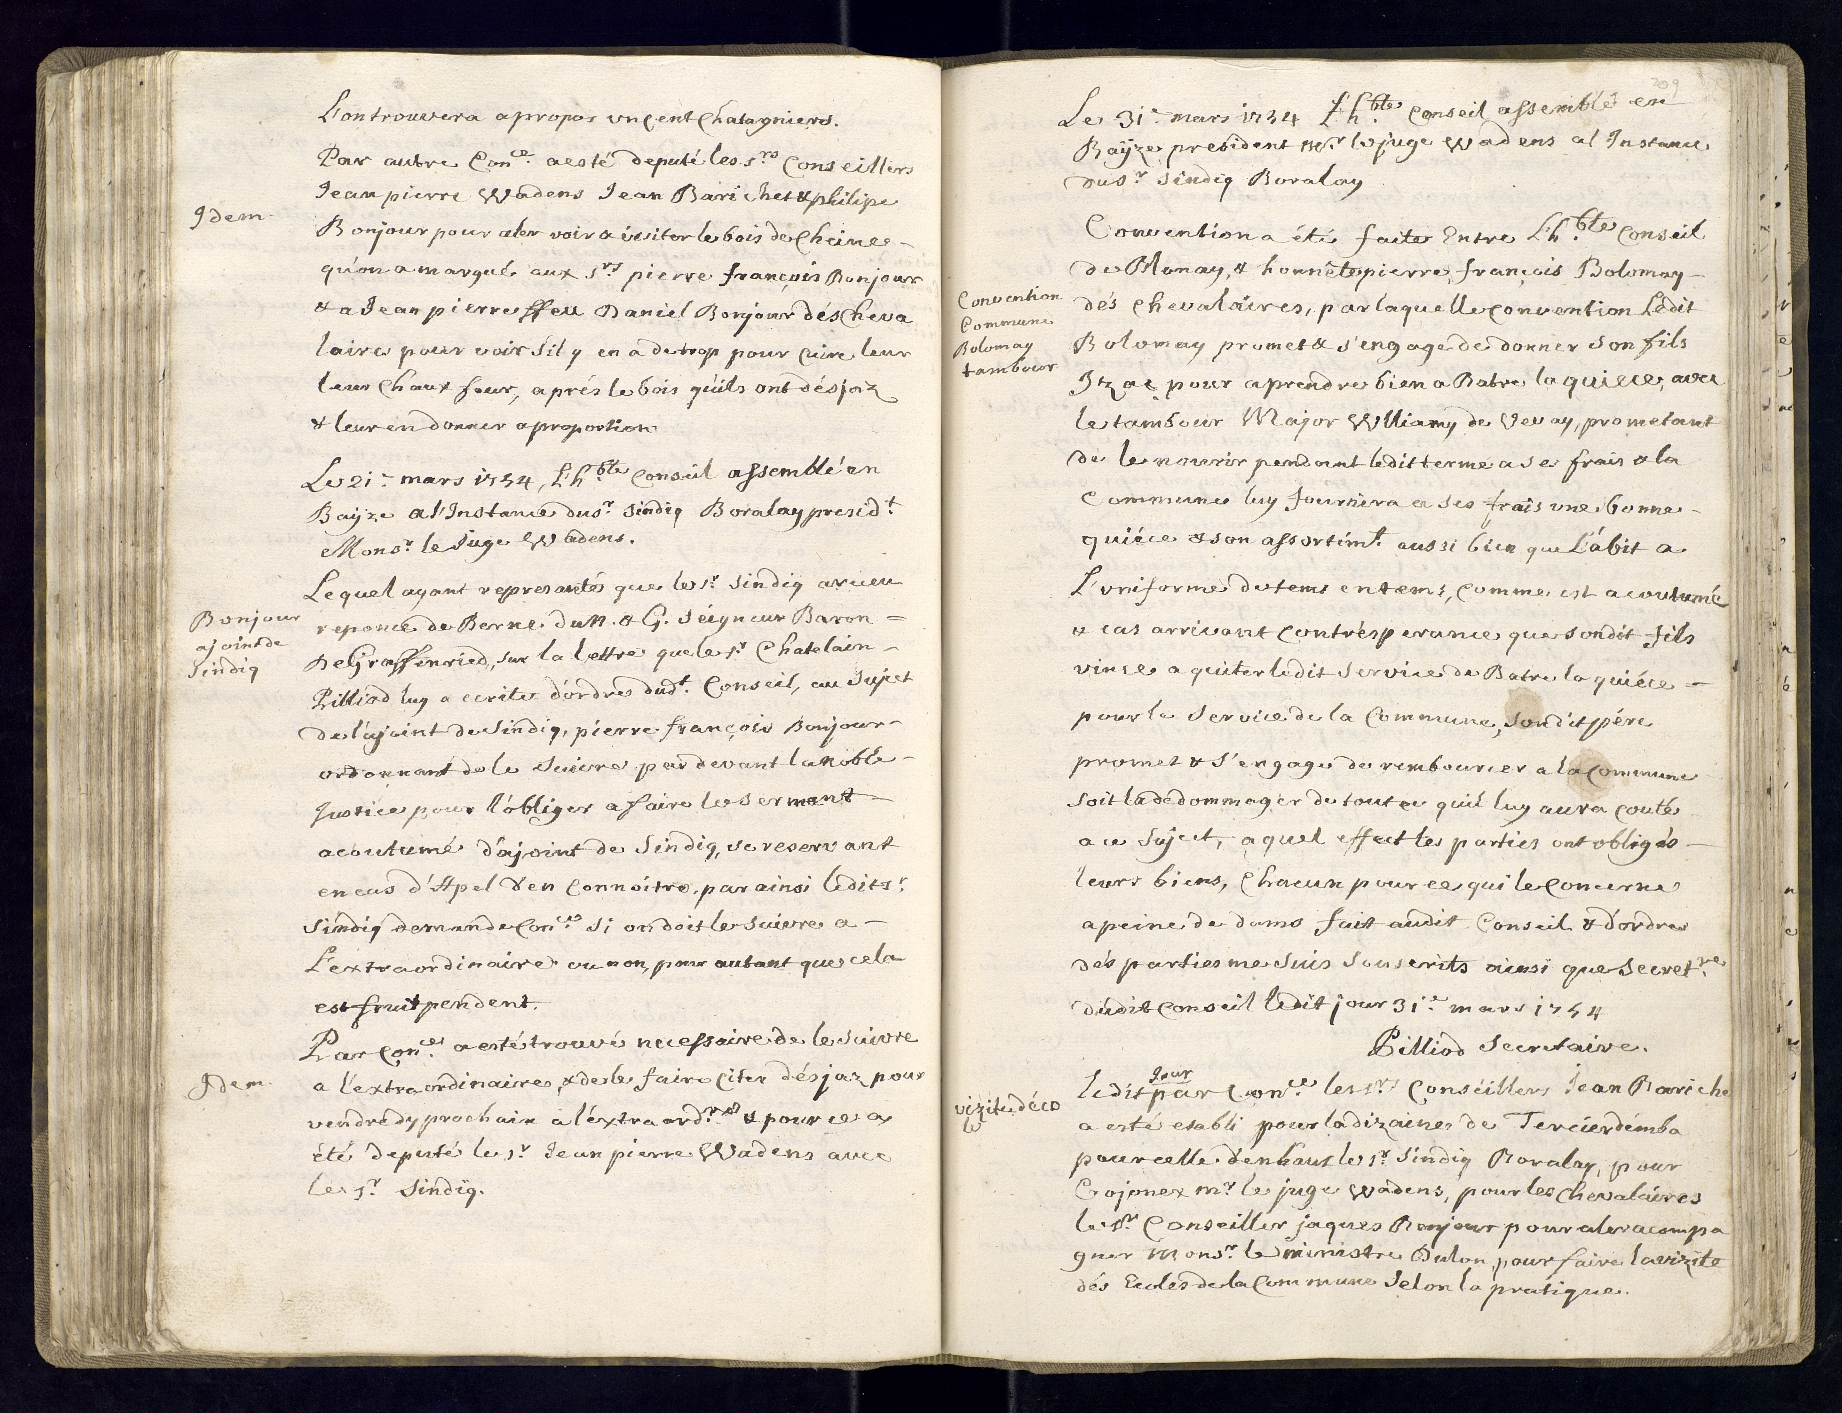 L'on trouvera apropos un cent Chatagniers.
Par autre Con.ce a esté deputé les s.rs Conseillers
Jean pierre Wadens Jean Barichet & philipe
Idem
Bonjour pour aler voir & visiter le bois de Cheinee -
qu'on a marqué aux s.rs pierre françois Bonjour
& a Jean pierre ffeu Daniel Bonjour dés Cheva
laire pour voir s'il y en a de trop pour cuire leur
leur Chaux four, aprés le bois qu'ils ont désjaz
& leur en donner a proportion
Le 21.e mars 1754, L'h.ble Conseil assemblé en
Bayze a l'Instance du s.r sindiq Boralay presid.t
Mons.r le Juge Wadens.
Lequel ayant represantés que le s.r sindiq a receu
Bonjour
ajoint de
sindiq
reponce de Berne du N. & G. Seigneur Baron =
De Graffenried, sur la lettre que le s.r Chatelain -
Pilliod luy a ecrite d'ordre dud.t Conseil, au sujet
de l'ajoint de sindiq, pierre françois Bonjour -
ordonnant de le suivre par devant la noble -
Justice pour l'obliger a faire le serment -
acoutumé d'ajoint de sindiq, se reservant
en cas d'Apel d'en connoitre, par ainsi ledit s.r
sindiq demande Con.ce si on doit le suivre a -
L'extraordinaire ou non, pour autant que cela
est fruit pendent.
Par Con.ce a esté trouvé necessaire de le suivre
Idem
a l'extraordinaire, & de le faire citer désjaz pour
vendredy prochain a l'éxtraord.re & pour ce a
été deputé le s.r Jean pierre Wadens avec
le s.r sindiq.
309
Le 31.e mars 1754 L'h.ble Conseil assemblé en
Bayze president m.r le juge Wadens a l'Instance
du s.r sindiq Boralay
Convention a été faite Entre L'h.ble Conseil
de Blonay, & honnête pierre françois Bolomay -
Convention
Commune
Bolomay
tambour
dés Chevalaires, par laquelle convention Ledit
Bolomay promet & s'engage de donner son fils
Itzac pour aprendre bien a Batre la quiece, avec
le tambour Major Williamy de Vevay, prometant
de le nourir pendant ledit terme a se frais & la
Commune luy fournira a ses frais une bonne -
quiéce & son assortim.t aussi bien que L'ábit a
L'uniforme de tems en tems, comme est acoutumé
& cas arrivant contrésperance que sondit fils
vinse a quiter ledit service de Batre la quiéce -
pour le service de la Commune, sondit pére
promet & s'engage de rembourcer a la commune
soit la dedommager de tout ce quil luy aura couté
a ce suject, a quel effect les parties ont obligés -
leurs biens, Chacun pour ce qui le concerne
a peine de dams fait audit Conseil & d'ordre
dés parties me suis souscrits ainsi que Secret.re
dudit Conseil ledit jour 31.e mars 1754
Pilliod Secretaire.
Ledit Jour par Con.ce les s.rs Conseillers Jean Bariche
vizite d'éco
le
a esté etabli pour la dizaine de Tercier d'emba
pour celle d'enhaut le s.r Sindiq Boralay, pour
Cojonex m.r le juge Wadens, pour les Chevalaires
le s.r Conseiller jaques Bonjour pour aler acompa
gner Mons.r le ministre Dulon, pour faire la vizite
dés Ecoles de la Commune selon la pratique.